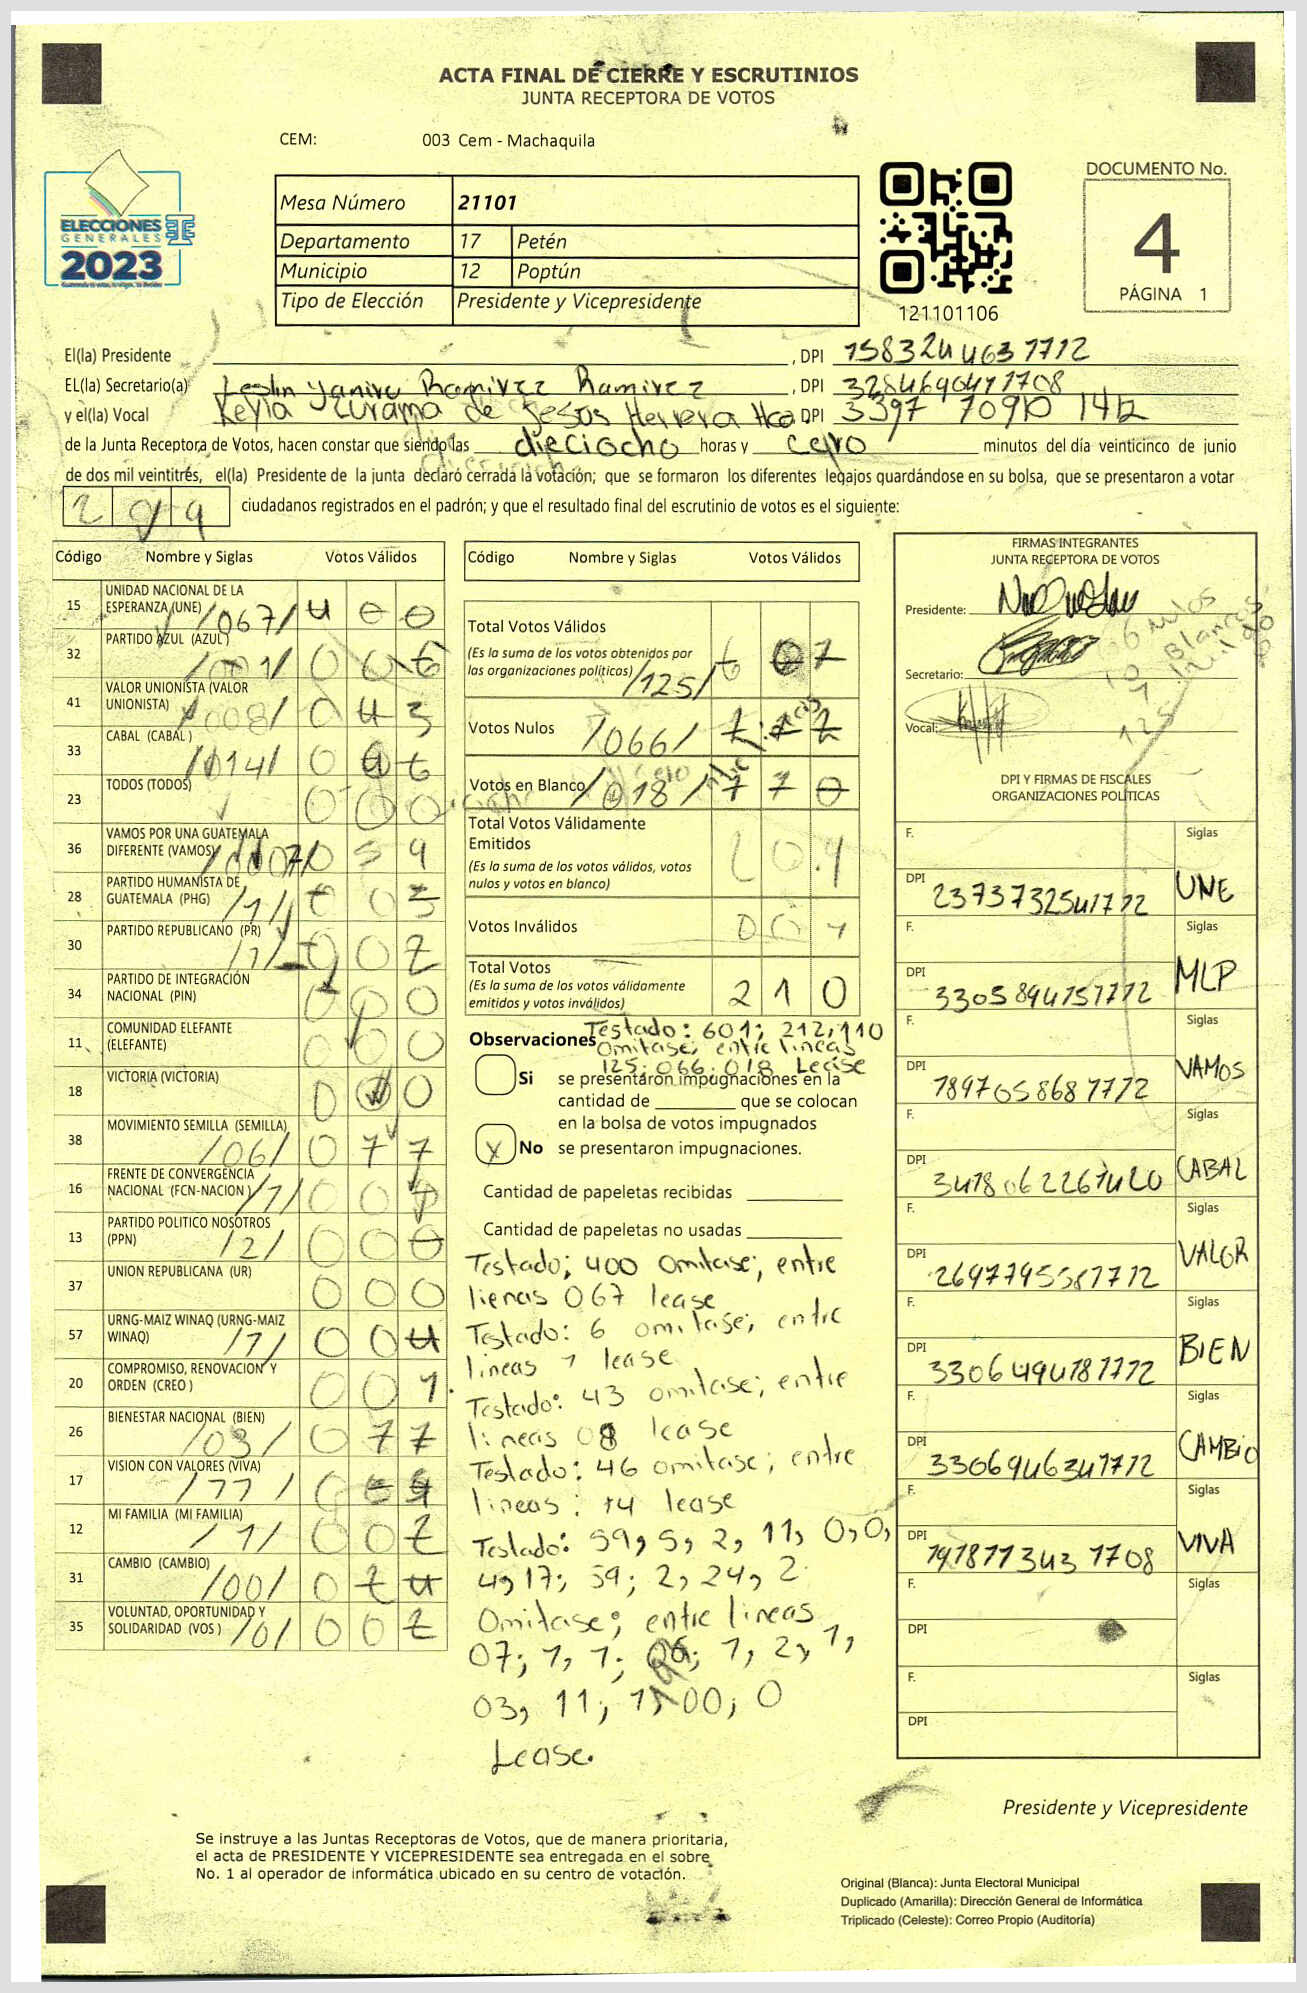 ACTA FINAL DE CIERRE Y ESCRUTINIOS
JUNTA RECEPTORA DE VOTOS
CEM: 003 Cem - Machaquila
ELECCIONES
GENERALES
2023
Mesa Número 21101
Departamento 17 Petén
Municipio 12 Poptún
Tipo de Elección Presidente y Vicepresidente
121101106
DOCUMENTO No.
4
PÁGINA 1
El(la) Presidente , DPI
EL(la) Secretario(a) Ramirez Ramirez , DPI
y el(la) Vocal Keyla de Jesus Herrera , DPI
de la Junta Receptora de Votos, hacen constar que siendo las dieciocho horas y cero minutos del día veinticinco de junio
de dos mil veintitrés, el(la) Presidente de la junta declaró cerrada la votación; que se formaron los diferentes legajos guardándose en su bolsa, que se presentaron a votar
2 0 9 ciudadanos registrados en el padrón; y que el resultado final del escrutinio de votos es el siguiente:
Código Nombre y Siglas Votos Válidos
15 UNIDAD NACIONAL DE LA
ESPERANZA (UNE) /067/ 4 0 0
32 PARTIDO AZUL (AZUL) /001/ 0 0 6
41 VALOR UNIONISTA (VALOR
UNIONISTA) /008/ 0 4 3
33 CABAL (CABAL) /014/ 0 4 6
23 TODOS (TODOS) 0 0 0
36 VAMOS POR UNA GUATEMALA
DIFERENTE (VAMOS) 0 5 9
28 PARTIDO HUMANISTA DE
GUATEMALA (PHG) /1/ 0 0 5
30 PARTIDO REPUBLICANO (PR) /1/ 0 0 2
34 PARTIDO DE INTEGRACIÓN
NACIONAL (PIN) 0 0 0
11 COMUNIDAD ELEFANTE
(ELEFANTE) 0 0 0
18 VICTORIA (VICTORIA) 0 0 0
38 MOVIMIENTO SEMILLA (SEMILLA) /06/ 0 1 1
16 FRENTE DE CONVERGENCIA
NACIONAL (FCN-NACION) /1/ 0 0
13 PARTIDO POLITICO NOSOTROS
(PPN) /2/ 0 0 0
37 UNION REPUBLICANA (UR) 0 0 0
57 URNG-MAIZ WINAQ (URNG-MAIZ
WINAQ) /1/ 0 0 4
20 COMPROMISO, RENOVACION Y
ORDEN (CREO) 0 0 1
26 BIENESTAR NACIONAL (BIEN) /03/ 0 1 7
17 VISION CON VALORES (VIVA) /11/
12 MI FAMILIA (MI FAMILIA) /1/ 0 0 2
31 CAMBIO (CAMBIO) /00/ 0 2 4
35 VOLUNTAD, OPORTUNIDAD Y
SOLIDARIDAD (VOS) /0/ 0 0 2
Código Nombre y Siglas Votos Válidos
Total Votos Válidos
(Es la suma de los votos obtenidos por
las organizaciones políticas) /125/ 6 0 1
Votos Nulos /066/ 2 1 2
Votos en Blanco /018/ 1 1 0
Total Votos Válidamente
Emitidos
(Es la suma de los votos válidos, votos
nulos y votos en blanco) 2 0 9
Votos Inválidos 0 0 1
Total Votos
(Es la suma de los votos válidamente
emitidos y votos inválidos) 2 1 0
Observaciones Testado: 601; 212, 110
Omitase; entre lineas
125; 066; 018 Lease
Si se presentaron impugnaciones en la
cantidad de que se colocan
en la bolsa de votos impugnados
x No se presentaron impugnaciones.
Cantidad de papeletas recibidas
Cantidad de papeletas no usadas
Testado; 400 omitase; entre
lienas 067 lease
Testado: 6 omitase; entre
lineas 1 lease
Testado: 43 omitase; entre
lineas 08 lease
Testado: 46 omitase; entre
lineas: 14 lease
Testado: 59, 5, 2, 11, 0, 0,
4, 17; 59; 2, 24, 2
Omitase; entre lineas
07; 1, 1; 06; 1, 2, 1,
03, 11; 1, 00; 0
Lease.
FIRMAS INTEGRANTES
JUNTA RECEPTORA DE VOTOS
Presidente:
Secretario:
Vocal:
DPI Y FIRMAS DE FISCALES
ORGANIZACIONES POLÍTICAS
F. Siglas
DPI 2373732541712 UNE
F. Siglas
DPI 3305894151712 MLP
F. Siglas
DPI 1897058681712 VAMOS
F. Siglas
DPI 3418062261420 CABAL
F. Siglas
DPI 2697795581712 VALOR
F. Siglas
DPI 3306494181712 BIEN
F. Siglas
DPI 3306946341712 CAMBIO
F. Siglas
DPI 1918113431708 VIVA
F. Siglas
DPI
F. Siglas
DPI
Presidente y Vicepresidente
Se instruye a las Juntas Receptoras de Votos, que de manera prioritaria,
el acta de PRESIDENTE Y VICEPRESIDENTE sea entregada en el sobre
No. 1 al operador de informática ubicado en su centro de votación.
Original (Blanca): Junta Electoral Municipal
Duplicado (Amarilla): Dirección General de Informática
Triplicado (Celeste): Correo Propio (Auditoría)